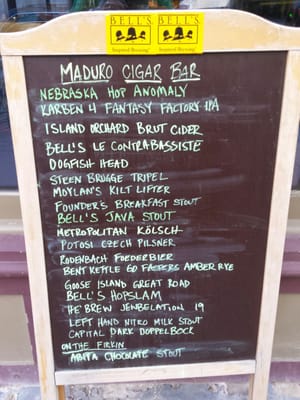 BELL'S BELL'S
Inspired Brewing Inspired Brewing
MADURO CIGAR BAR
NEBRASKA HOP ANOMALY
KARBEN 4 FANTASY FACTORY IPA
ISLAND ORCHARD BRUT CIDER
BELL'S LE CONTRABASSISTE
DOGFISH HEAD
STEEN BRUGGE TRIPEL
MOYLAN'S KILT LIFTER
FOUNDER'S BREAKFAST STOUT
BELL'S JAVA STOUT
METROPOLITAN KÖLSCH
POTOSI CZECH PILSNER
RODENBACH FOEDERBIER
BENT KETTLE 60 FASTERS AMBER RYE
GOOSE ISLAND GREAT ROAD
BELL'S HOPSLAM
THE BREW JENBELATION 19
LEFT HAND NITRO MILK STOUT
CAPITAL DARK DOPPELBOCK
ON THE FIRKIN
ABITA CHOCOLATE STOUT